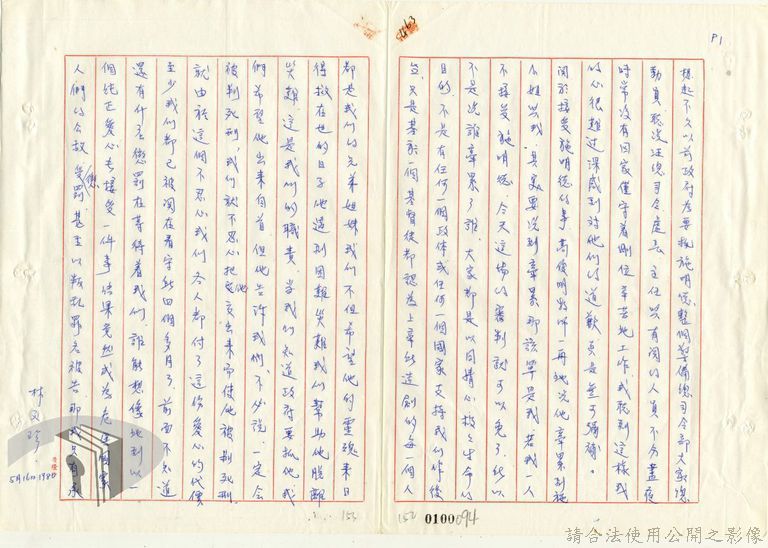 P1
想起不久以前政府為要抓施明德,整個警備總司令部大家總
動員,聽說汪總司令、處長、主任以有関的人員不分晝夜
時常沒有回家僅守着崗位辛苦地工作,我聽到這樣,我
的心很難过,深感到对他們的道歉真是無可彌補。
関於接受施明德的事,高俊明牧師一再地說他牽累到施
小姐與我,其实要說到牽累那該算是我,若我一人
不接受施明德,今天這場的審判就可以免了,所以
不是說誰牽累了誰,大家都是以同情心救人生命的
目的,不是有任何一個政体或任何一個国家支持我们作後
盾,只是基於一個基督徒都認為上帝所造的每一個人
都是我们的兄弟姐妹,我们不但希望他的靈魂来日
得救,在世的日子他遇到困難災難我们幫助他脫離
災難,這是我们的職責。當我们知道政府要抓他,我
們希望他出来自首,但他告訴我们,不必說,一定会
被判死刑,我们就不忍心把他交出来而使他被判死刑,
就由於這個不忍心,我们各人都付了這份愛心的代價
至少我们都已被関在看守所四個多月了,前面不知道
還有什麼懲罰在等待着我们,誰能想像地到以一
個純正愛心去接受一件事,結果竟然成為危害國家
人們的公敵,受懲罰,甚至以叛乱罪名被告,那我只有求
林文珍
5月16日1980
152
0100094
153
請合法使用公開之影像